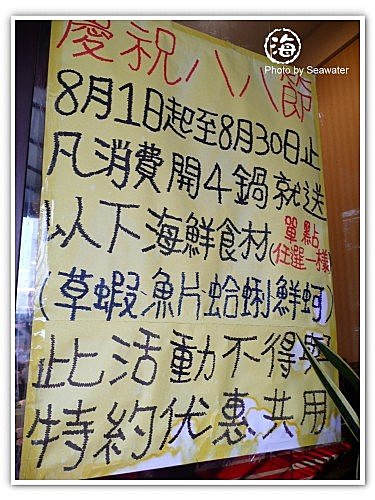 海
Photo by Seawater
慶祝八八節
8月1日起至8月30日止
凡消費開4鍋就送
以下海鮮食材(單點任選一樣)
(草蝦漁片蛤蜊鮮蚵)
此活動不得與
特約优惠共用